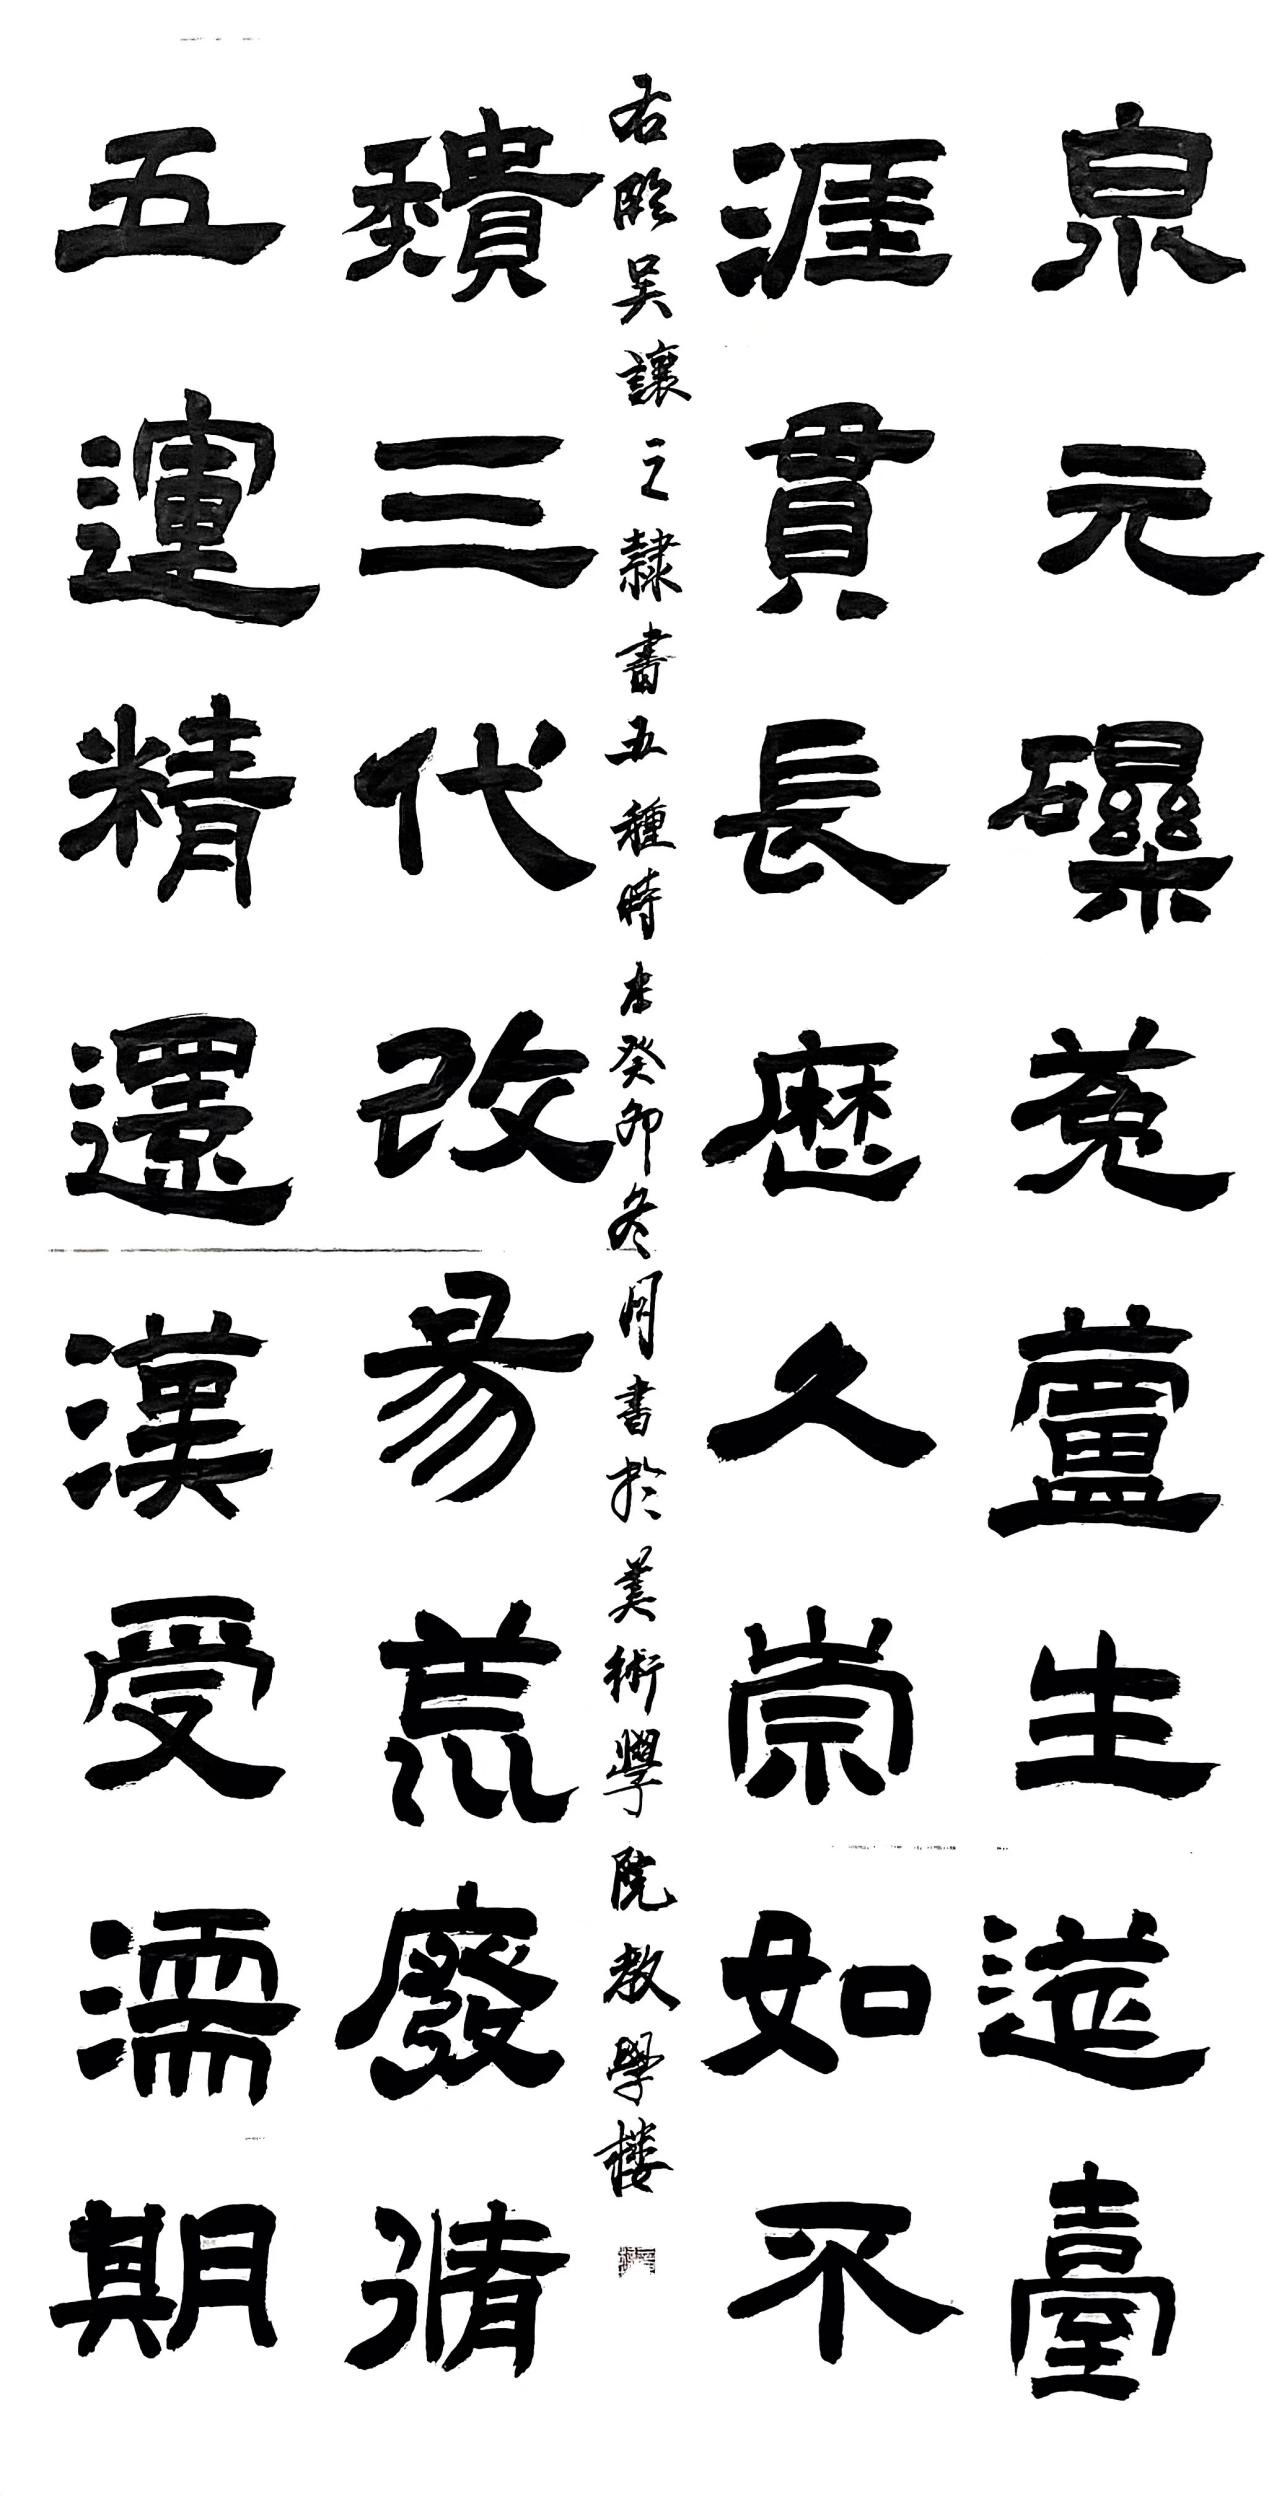 泉元礫蘆生臺
涯貫長歷久崇如不
右臨吳讓之隸書五種時在癸卯冬月書於美術學院教學樓
三代改易荒廢情
五運精還漢受濡期